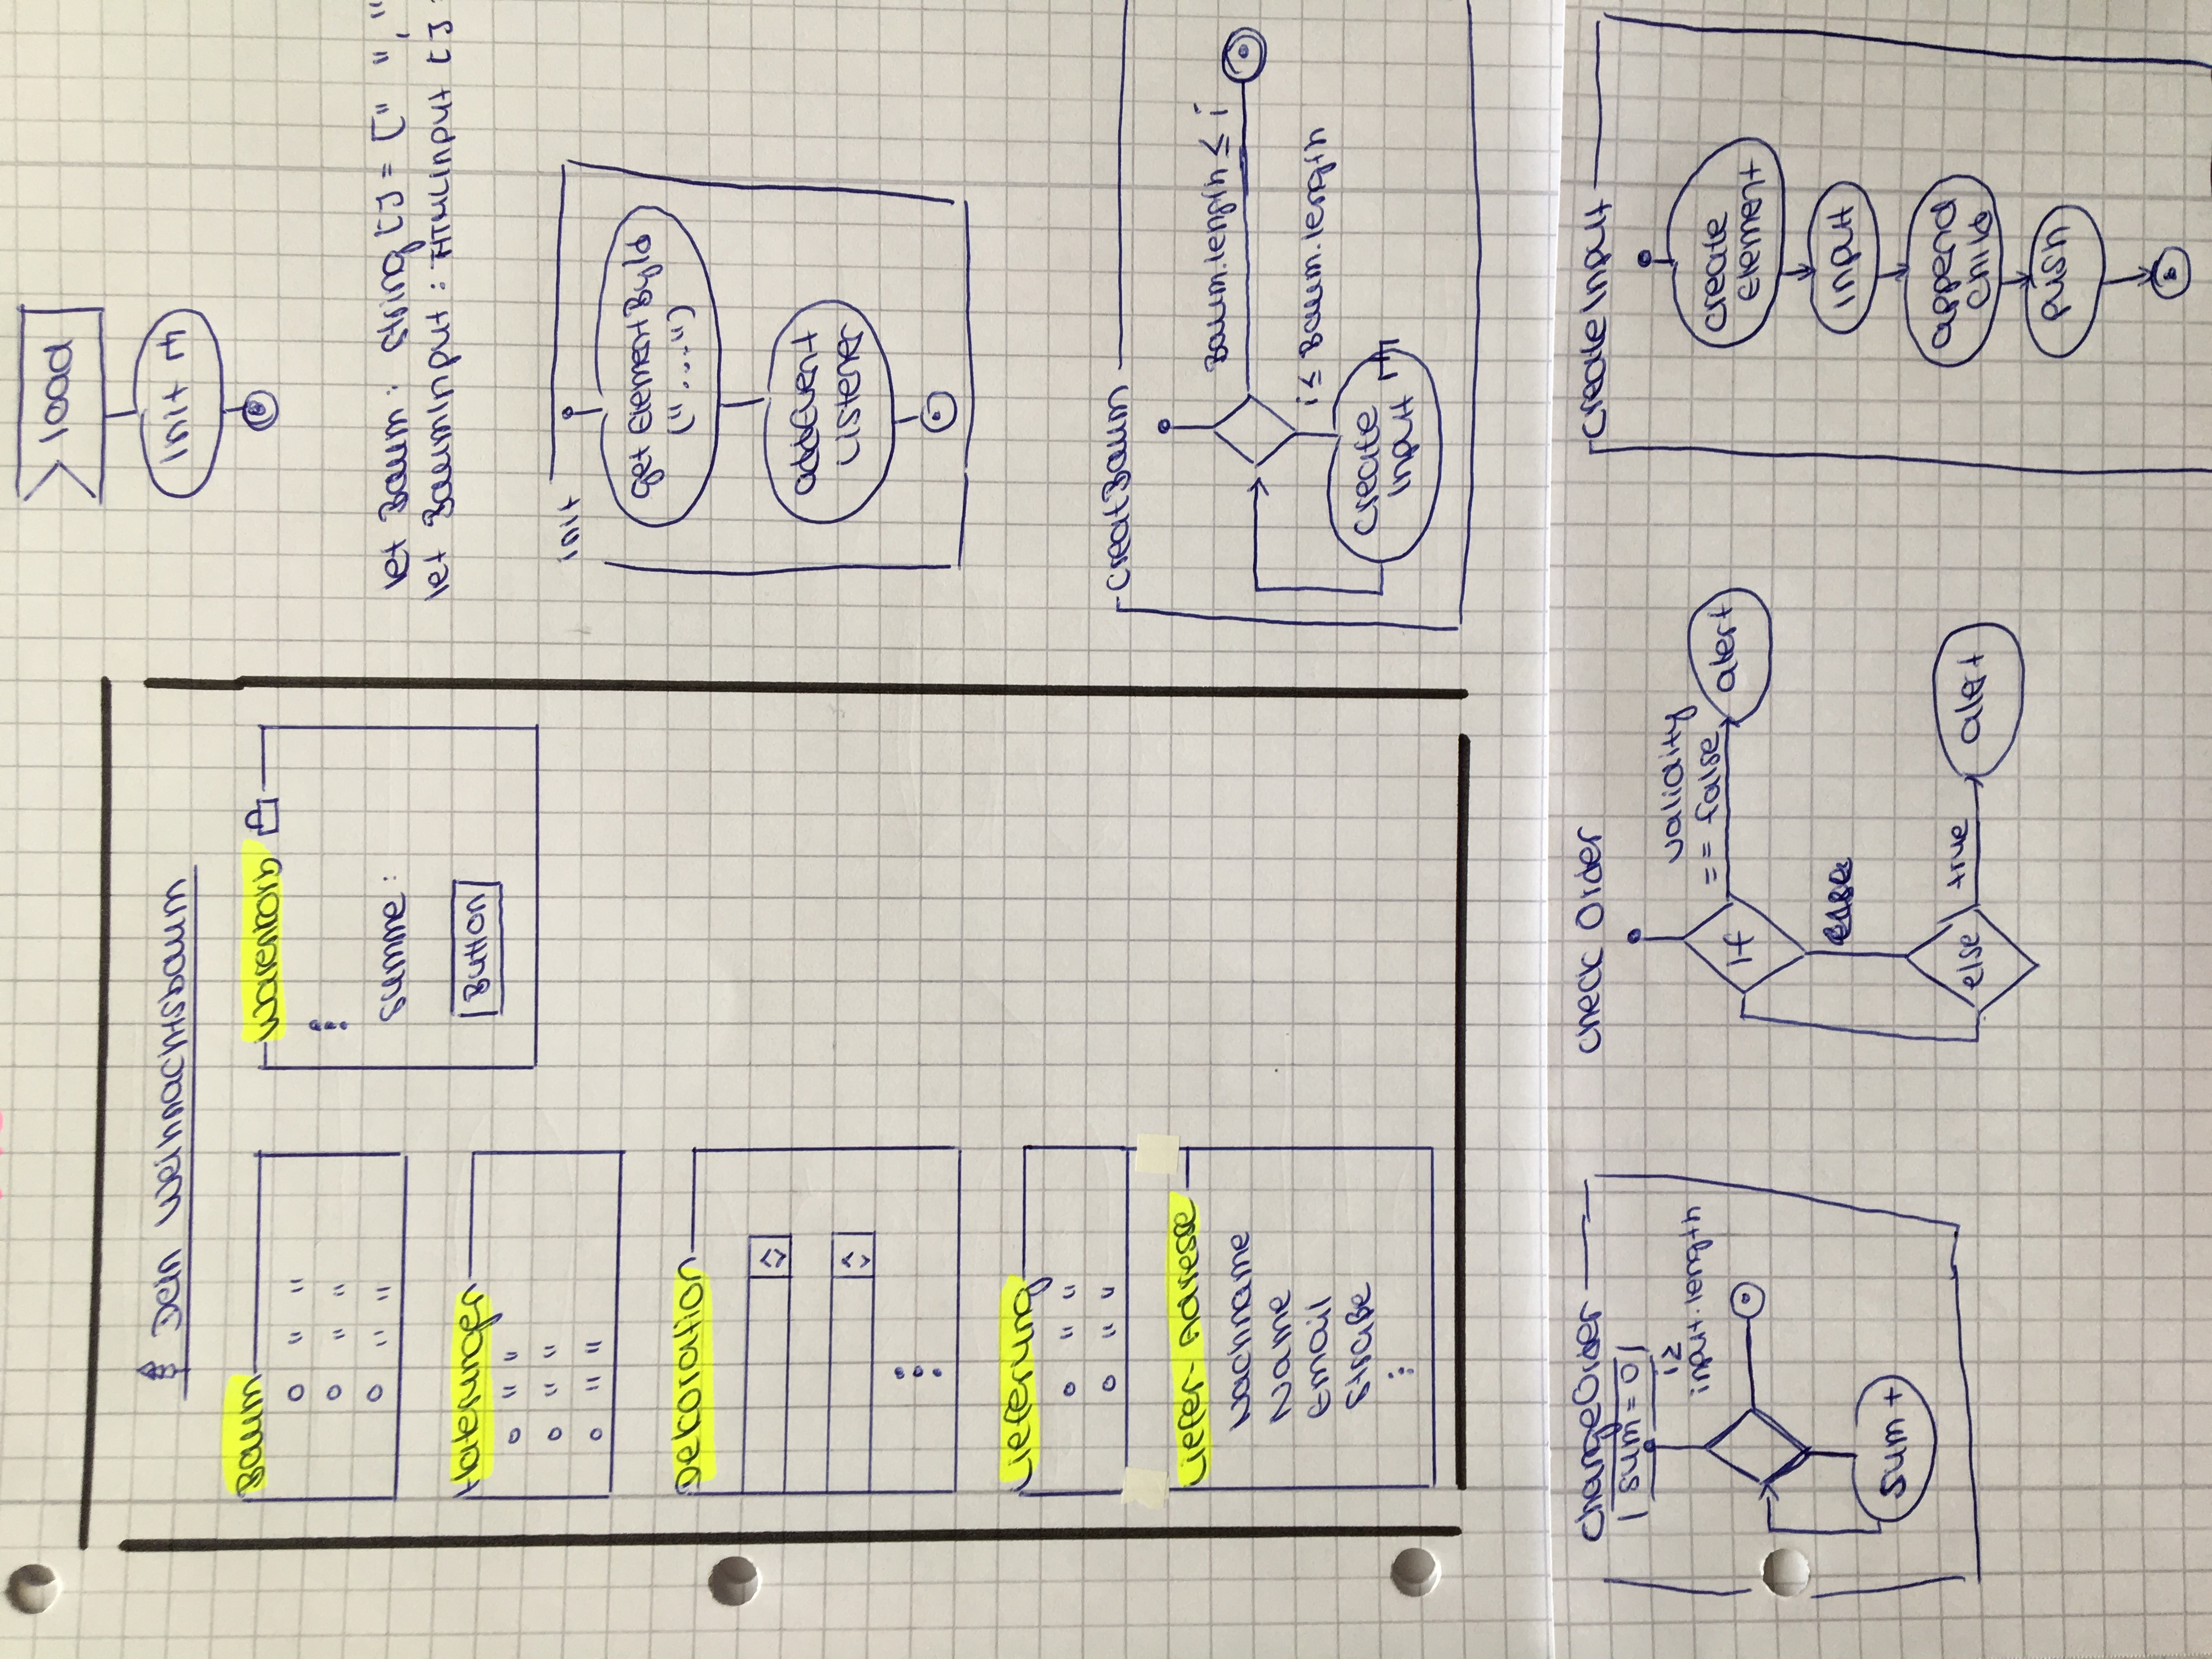 Dein Weihnachtsbaum
Baum
" "
" "
" "
Halterungen
" "
" "
" "
Dekoration
Lieferung
" "
" "
Liefer-Adresse
Nachname
Name
Email
Straße
Warenkorb
summe:
Button
load
init
let Baum: string[] = [" ", "
let BaumInput: HTMLinput []
init
getElementById
("...")
addEvent
Listener
creatBaum
Baum.length ≤ i
i ≤ Baum.length
create
input
changeOrder
sum = 0
i ≥
input.length
sum +
check Order
validity
== false
if
alert
else
else
true
alert
createInput
create
Element
input
append
Child
push